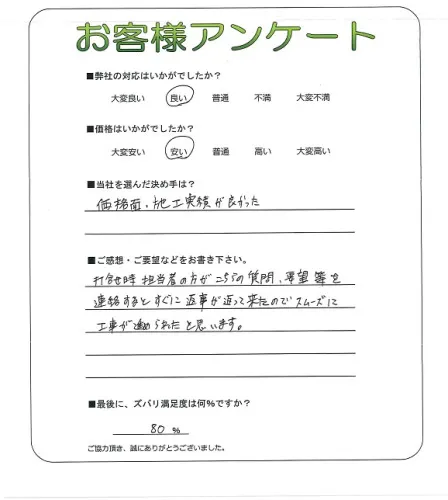 お客様アンケート
■弊社の対応はいかがでしたか？
大変良い 良い 普通 不満 大変不満
■価格はいかがでしたか？
大変安い 安い 普通 高い 大変高い
■当社を選んだ決め手は？
価格面・施工実績が良かった
■ご感想・ご要望などをお書き下さい。
打合せ時 担当者の方がこちらの質問、要望等を
連絡するとすぐに返事が返って来たのでスムーズに
工事が進められたと思います。
■最後に、ズバリ満足度は何％ですか？
80 %
ご協力頂き、誠にありがとうございました。